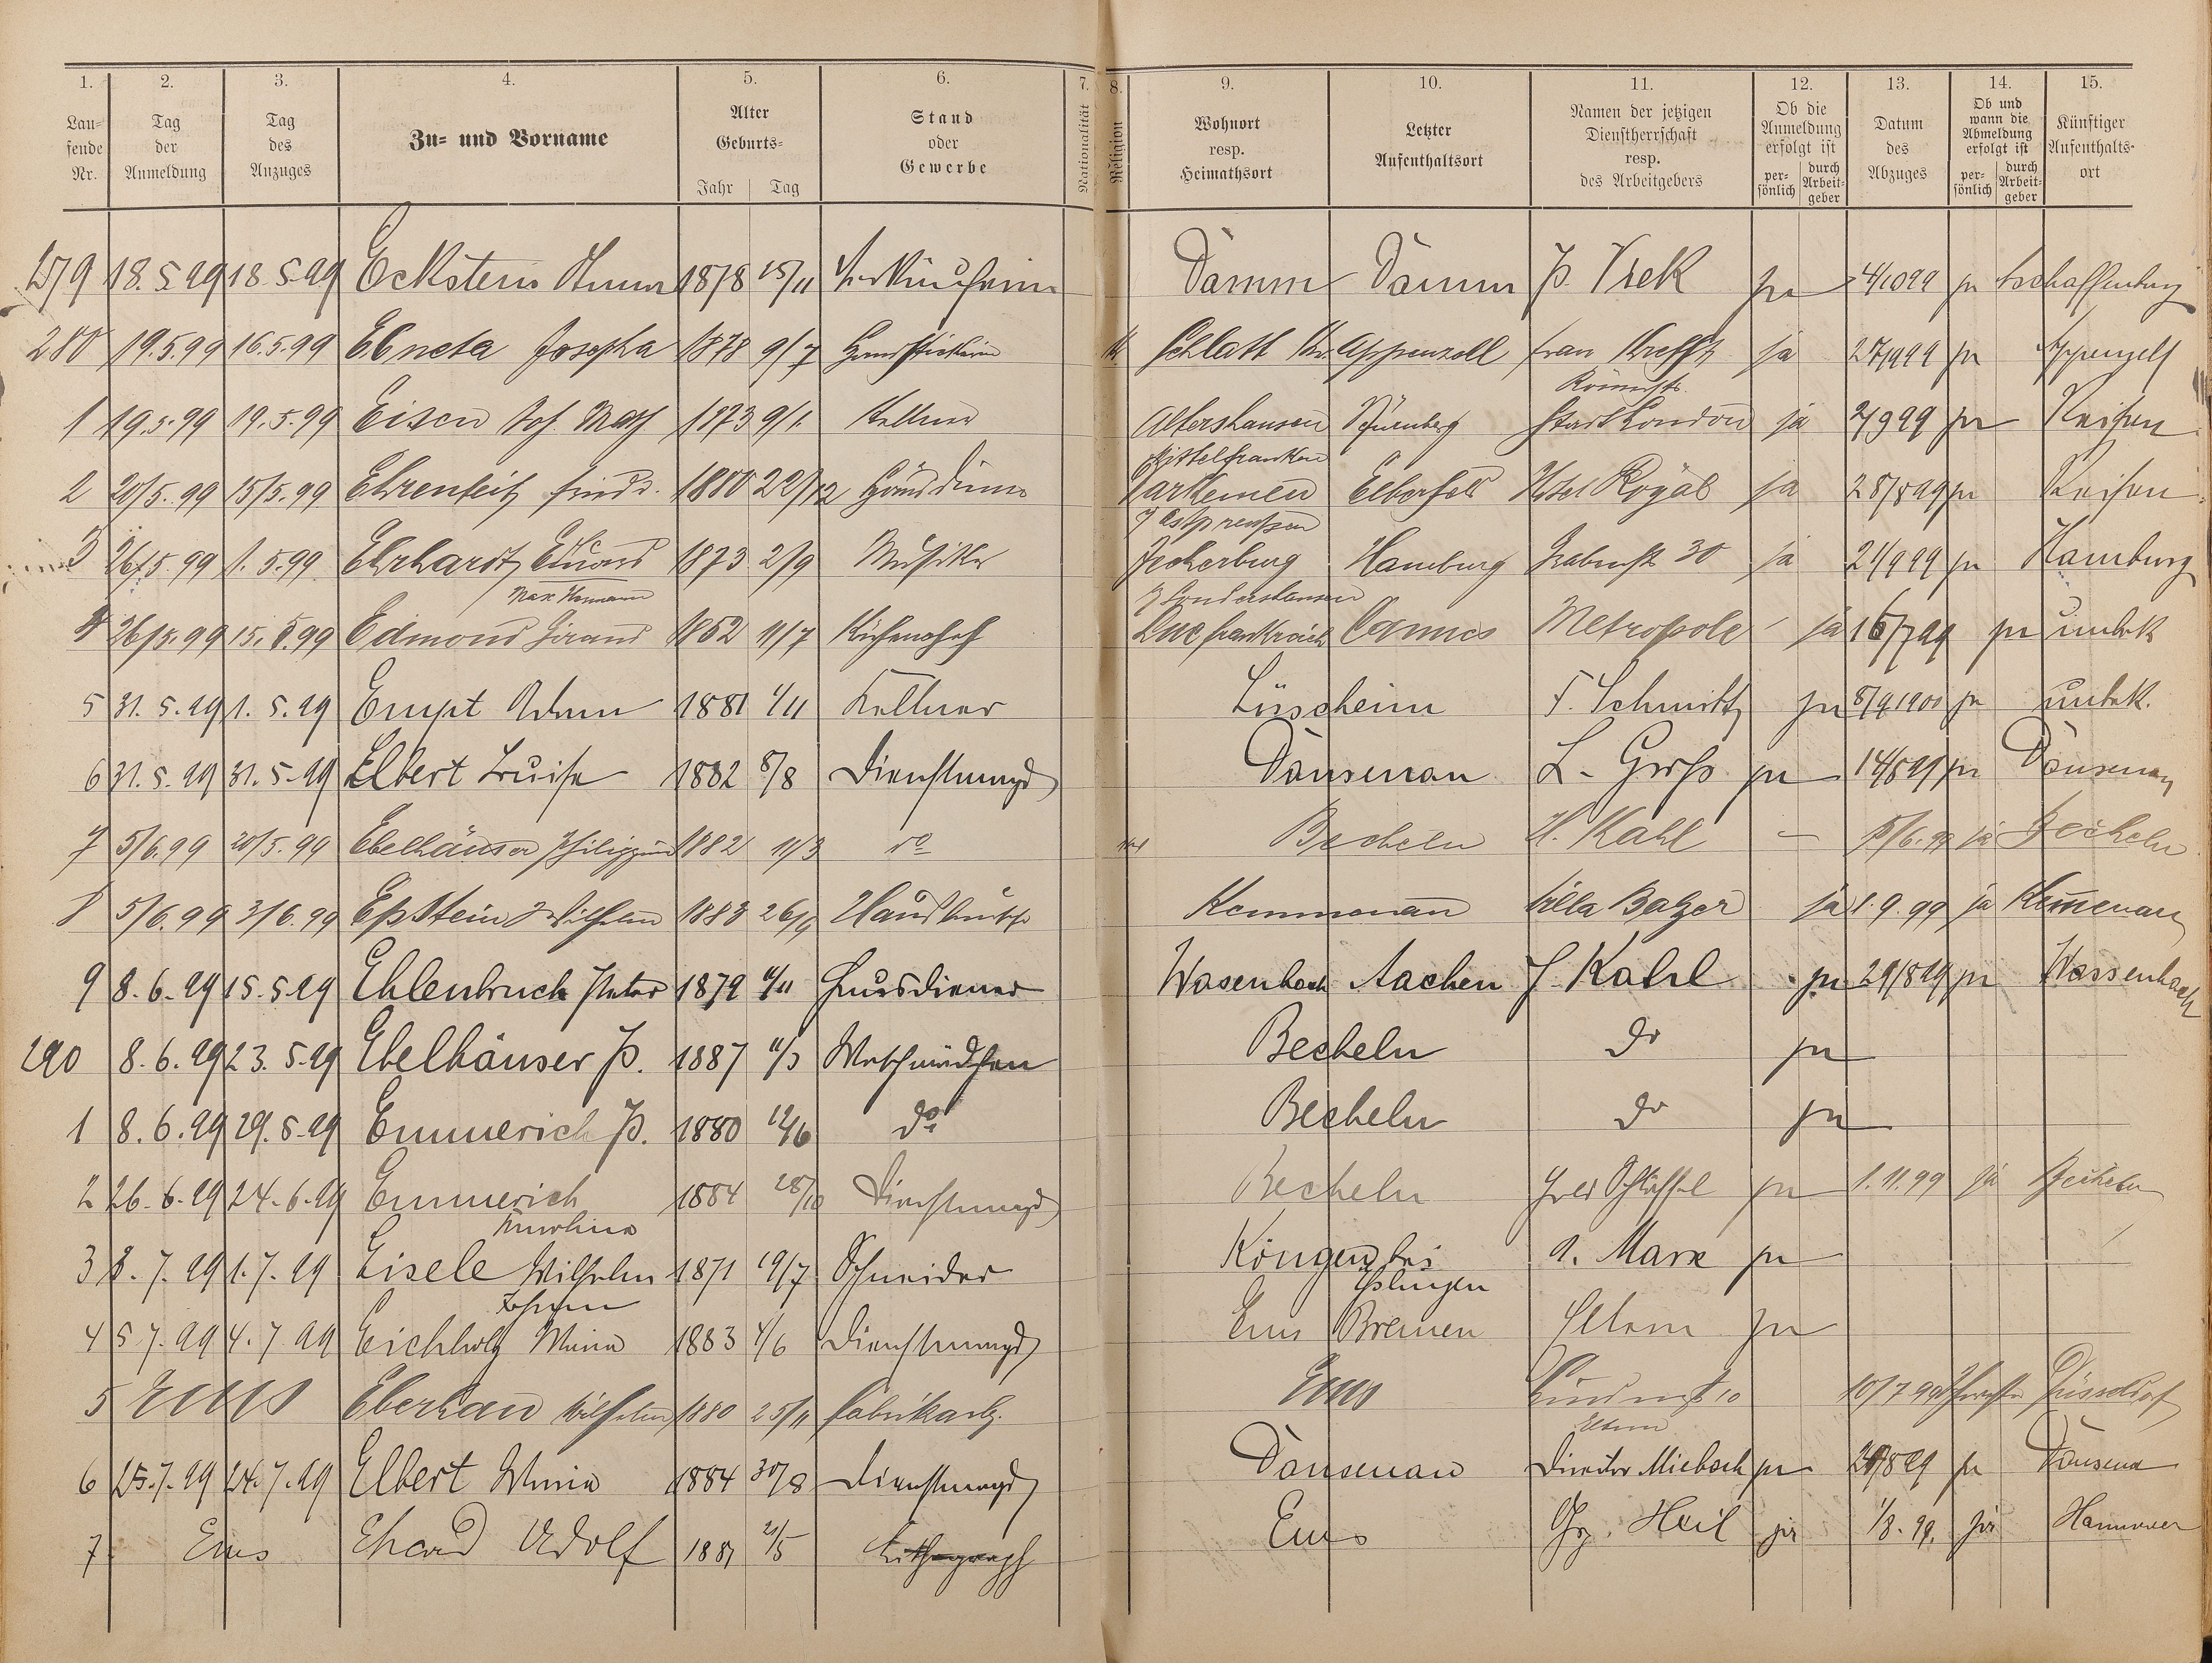 1. 2. 3. 4. 5. 6. 7. 8. 9. 10. 11. 12. 13. 14. 15.
Lau-
fende
Nr.
Tag
der
Anmeldung
Tag
des
Anzuges
Zu- und Vorname
Alter
Geburts-
Jahr Tag
Stand
oder
Gewerbe
Nationalität
Religion
Wohnort
resp.
Heimathsort
Letzter
Aufenthaltsort
Namen der jetzigen
Dienstherrschaft
resp.
des Arbeitgebers
Ob die
Anmeldung
erfolgt ist
per-
sönlich
durch
Arbeit-
geber
Datum
des
Abzuges
Ob und
wann die
Abmeldung
erfolgt ist
per-
sönlich
durch
Arbeit-
geber
Künftiger
Aufenthalts-
ort
279 18.5.99 18.5.99 Eckstein 1878 15/11 Damm Damm ja ja Aschaffenburg
280 19.5.99 16.5.99 Ebneta Josepha 1878 9/7 Handstickerin K. Schlatt Appenzell Frau ja ja Appenzell
Römerstr.
1 19.5.99 19.5.99 Eisen Joh. 1873 9/1 Kellner Altershausen Nürnberg Stadt London ja 2/9 99 ja Reisen
Mittelfranken
2 20/5.99 15/5.99 1880 22/12 Hausdiener Darkemen Elberfeld Hotel Royal ja 28/8 99 ja Reisen
Ostpreußen
3 26/5.99 1.5.99 Ehrhardt 1873 2/9 Musiker Jecherburg Hamburg Grabenstr 30 ja 21/9 99 ja Hamburg
Max Hermann Sondershausen
4 26/5.99 Edmond Giraud 1852 11/7 Küchenchef Frankreich Cannes Metropole ja 16/7 99 ja unbek
5 31.5.99 1.5.99 Empt Adam 1881 1/11 Kellner Lüscheim F. Schmitt ja 8/9 1900 ja unbek.
6 31.5.99 31.5.99 Elbert Luise 1882 8/8 Dienstmagd Dausenau L. Groß ja ja Dausenau
7 5/6.99 20/5.99 Ebelhäuser Philippine 1882 11/3 do Becheln H. Kahl — 15/6.99 ja Becheln
8 5/6.99 3/6.99 Epstein Wilhelm 1883 26/9 Hausbursche Kemmenau Villa Balzer ja 1.9.99 ja Kemenau
9 8.6.99 15.5.99 Ehlenbruch Peter 1879 11/11 Hausdiener Wasenbach Aachen J. Kahl ja 29/8 99 ja Wassenbach
290 8.6.99 23.5.99 Ebelhäuser P. 1887 11/3 Waschmädchen Becheln do ja
1 8.6.99 29.5.99 Emmerich P. 1880 12/6 do Becheln do ja
2 26.6.99 24.6.99 Emmerich 1884 28/10 Dienstmagd Becheln ja 1.11.99 ja Becheln
Karolina
3 8.7.99 1.7.99 Eisele Wilhelm 1871 19/7 Schneider Köngen bei A. Marx ja
Johann Eslingen
4 5.7.99 4.7.99 Eichholz Mina 1883 4/6 Dienstmagd Ems Bremen Eltern ja
5 Ems Wilhelm 1880 25/11 Fabrikarb. Ems 10/7 99 Düsseldorf
Eltern
6 25.7.99 24.7.99 Elbert Mina 1884 30/8 Dienstmagd Dausenau Direktor Miebach ja ja Dausenau
7 Ems Ehard Adolf 1881 21/5 Lithograph Ems Gg. Heil ja 1/8.99. ja Hannover